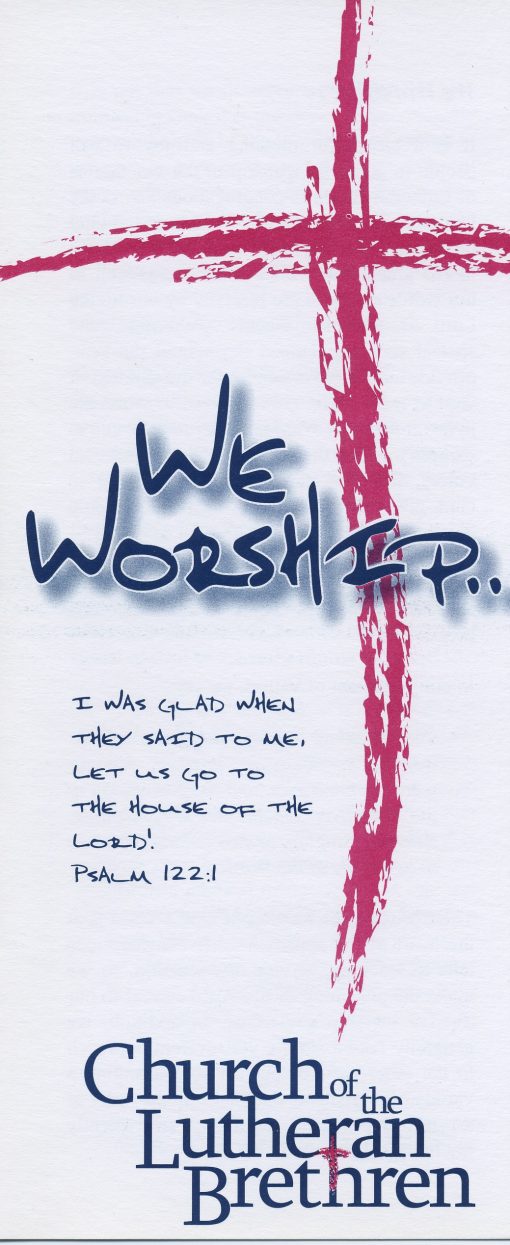 WE
WORSHIP...
I WAS GLAD WHEN
THEY SAID TO ME,
LET US GO TO
THE HOUSE OF THE
LORD!
PSALM 122:1
Church of the
Lutheran
Brethren